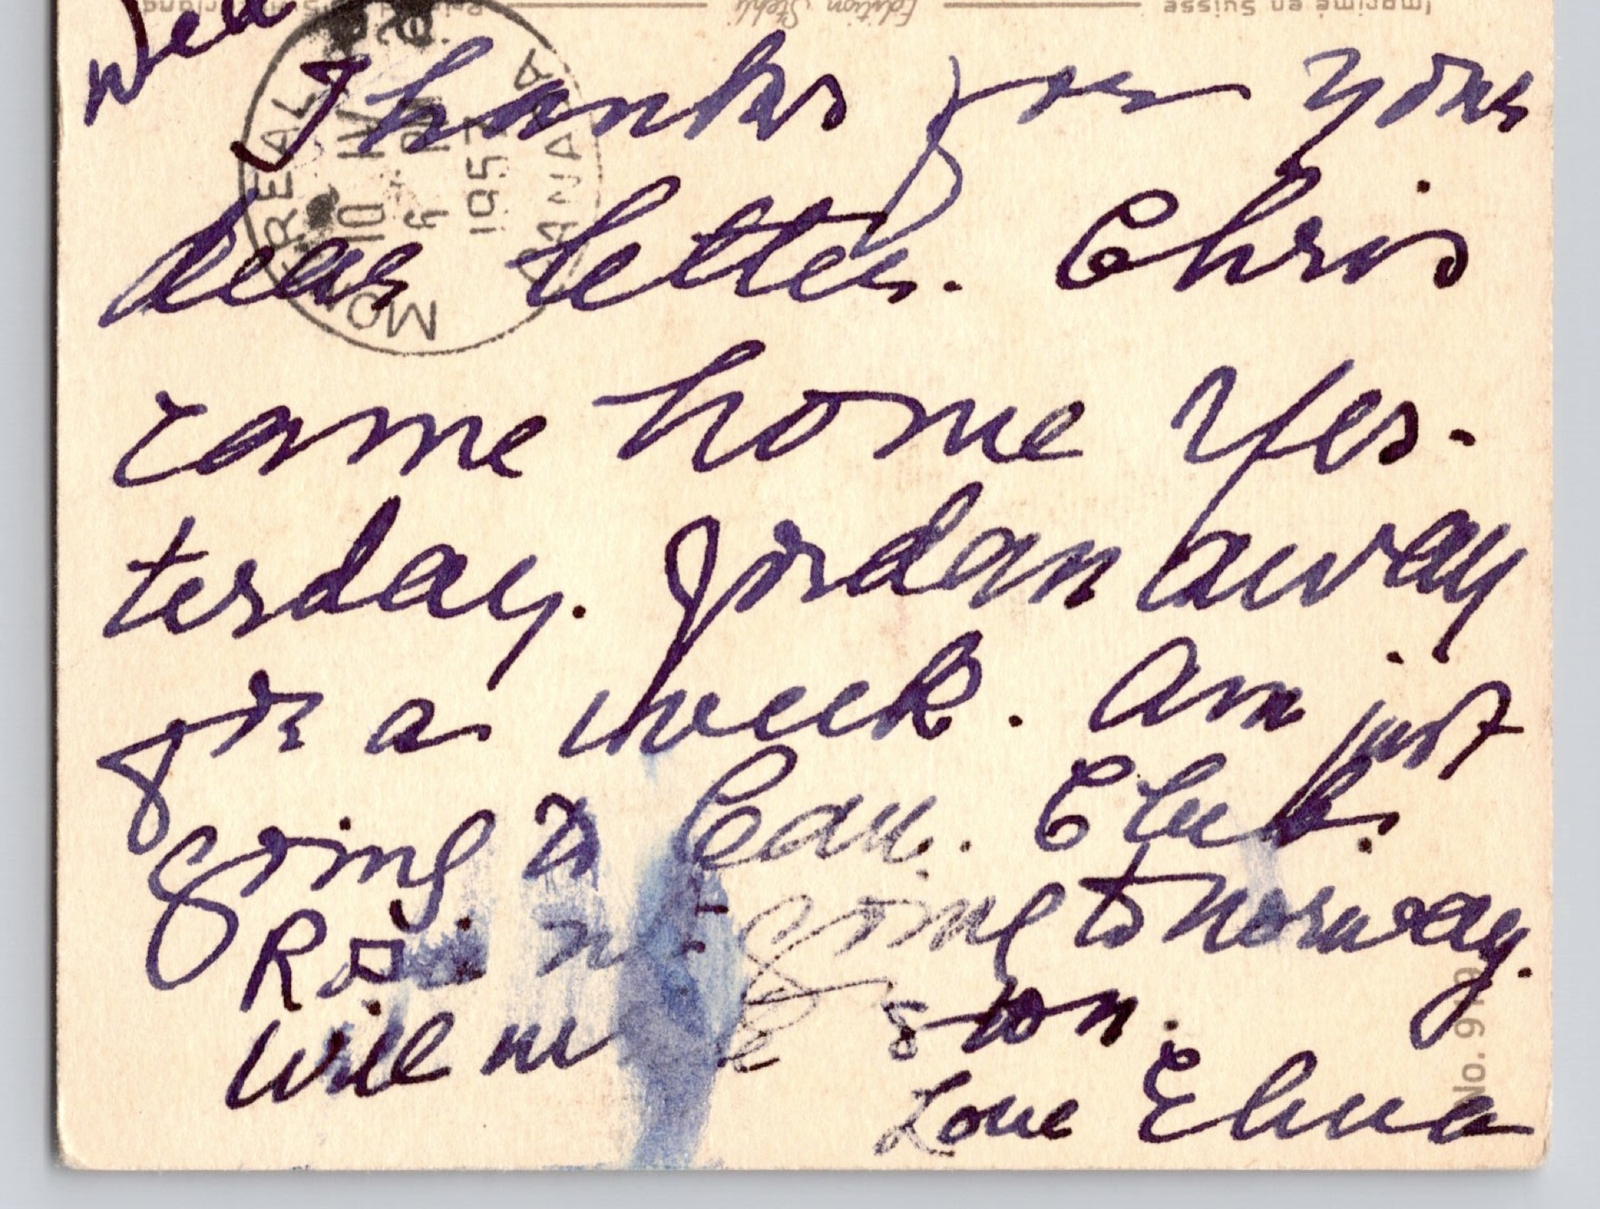 Wed
Thanks for your
dear letter. Chris
came home Yes-
terday. Jordan away
for a week. Am just
going to Can. Club.
going to Norway.
Will soon.
Love Elma
MONTREAL
10
1957
CANADA
Imprimé en Suisse
Edition Stehli
No. 9